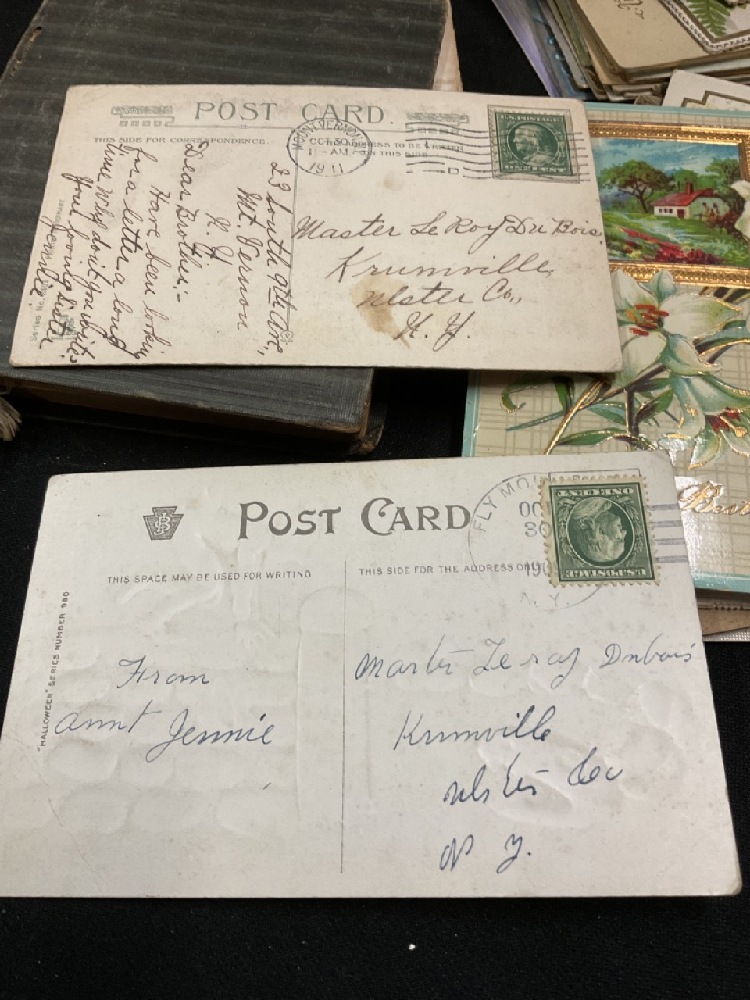 POST CARD.
THIS SIDE FOR CORRESPONDENCE.
MOUNT VERNON
OCT 30
11-AM
1911
U.S. POSTAGE
ONE CENT
23 South 9th Ave,
Mt. Vernon
N. Y.
Dear Brother:-
Have been looking
for a letter a long
time Why don't you write
Your loving sister
Jennie.
Series No.
Master Le Roy Du Bois,
Krumville,
Ulster Co.,
N. Y.
Best
POST CARD
THIS SPACE MAY BE USED FOR WRITING
THIS SIDE FOR THE ADDRESS
"HALLOWEEN" SERIES NUMBER 980
FLY MO
OC
30
19
N.Y.
U.S. POSTAGE
ONE CENT
From
annt Jennie
Master Leroy Dubois
Krumville
Ulster Co
N Y.